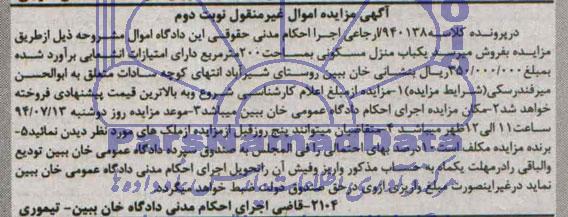 آگهی مزایده اموال غیرمنقول نوبت دوم
درپرونده کلاسه ۹۴۰۱۳۸/ارجاعی اجرا احکام مدنی حقوقی این دادگاه اموال مشروحه ذیل ازطریق
مزایده بفروش میرسد یکباب منزل مسکونی بمساحت ۲۰۰مترمربع دارای امتیازات انشعابی برآورد شده
بمبلغ ۳۵۰/۰۰۰/۰۰۰ریال بنشانی خان ببین روستای شیرآباد انتهای کوچه سادات متعلق به ابوالحسن
میرفندرسکی(شرایط مزایده)۱-مزایده ازمبلغ اعلام کارشناسی شروع وبه بالاترین قیمت پیشنهادی فروخته
خواهد شد۲-مکان مزایده اجرای احکام دادگاه عمومی خان ببین میباشد۳-موعد مزایده روز دوشنبه ۹۴/۰۷/۱۳
ساعت۱۱ الی۱۲ظهر میباشد ۴-متقاضیان میتوانند پنج روزقبل ازمزایده ازملک های مورد نظر دیدن نمایند۵-
برنده مزایده مکلف است ۱۰درصد بهای احتمالی رافی المجلس به صندوق سپرده دادگاه عمومی خان ببین تودیع
والباقی رادرمهلت یکماه به حساب مذکور واریز وفیش آن راتحویل اجرای احکام دادگاه عمومی خان ببین
نماید درغیراینصورت مبلغ واریزی ازوی درحق صندوق دولت ضبط خواهد میگردد.
۲۱۰۴-قاضی اجرای احکام مدنی دادگاه خان ببین- تیموری
ParsNamadData